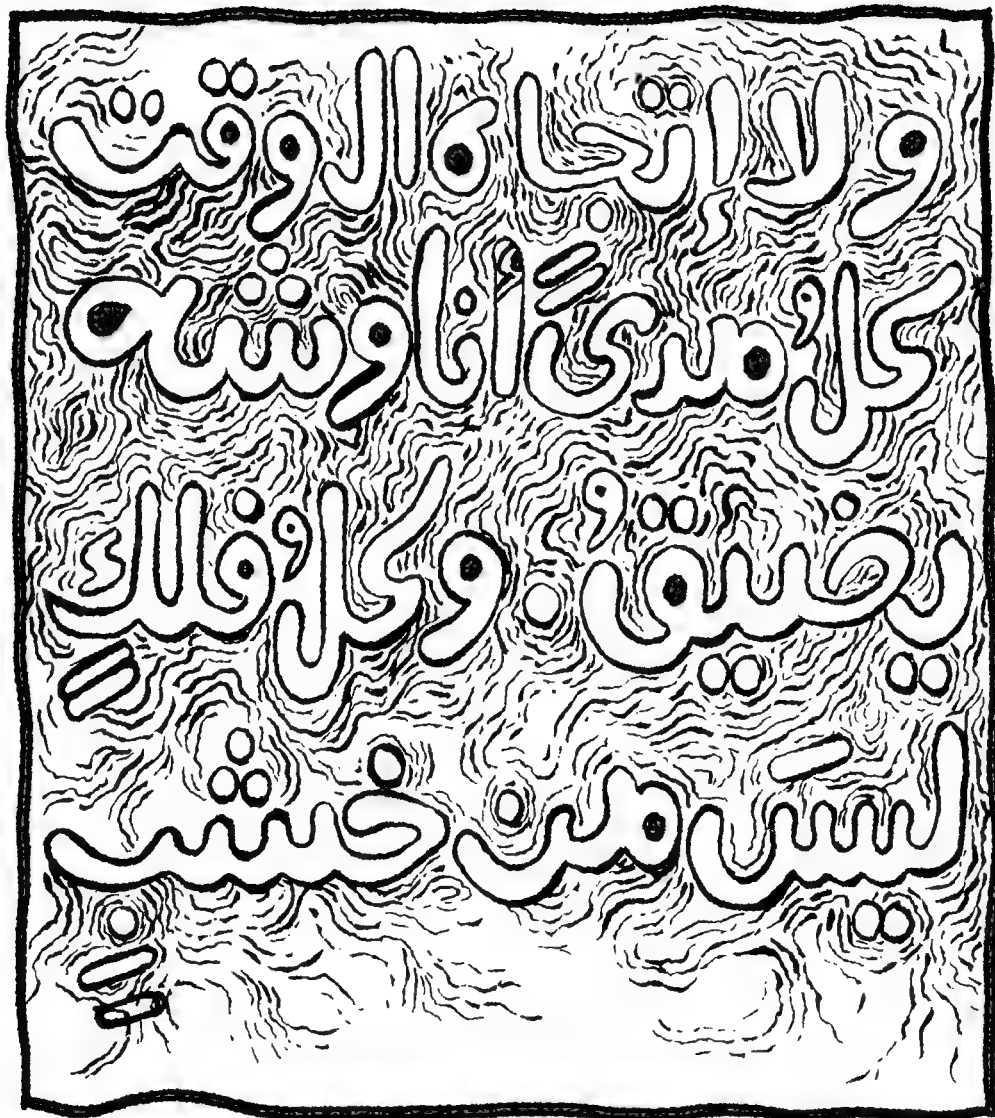 ولا إتجاه الوقت
كلُ مدىً أناوشه
يضيقُ . وكلُ فلكٍ
ليسَ من خشبٍ